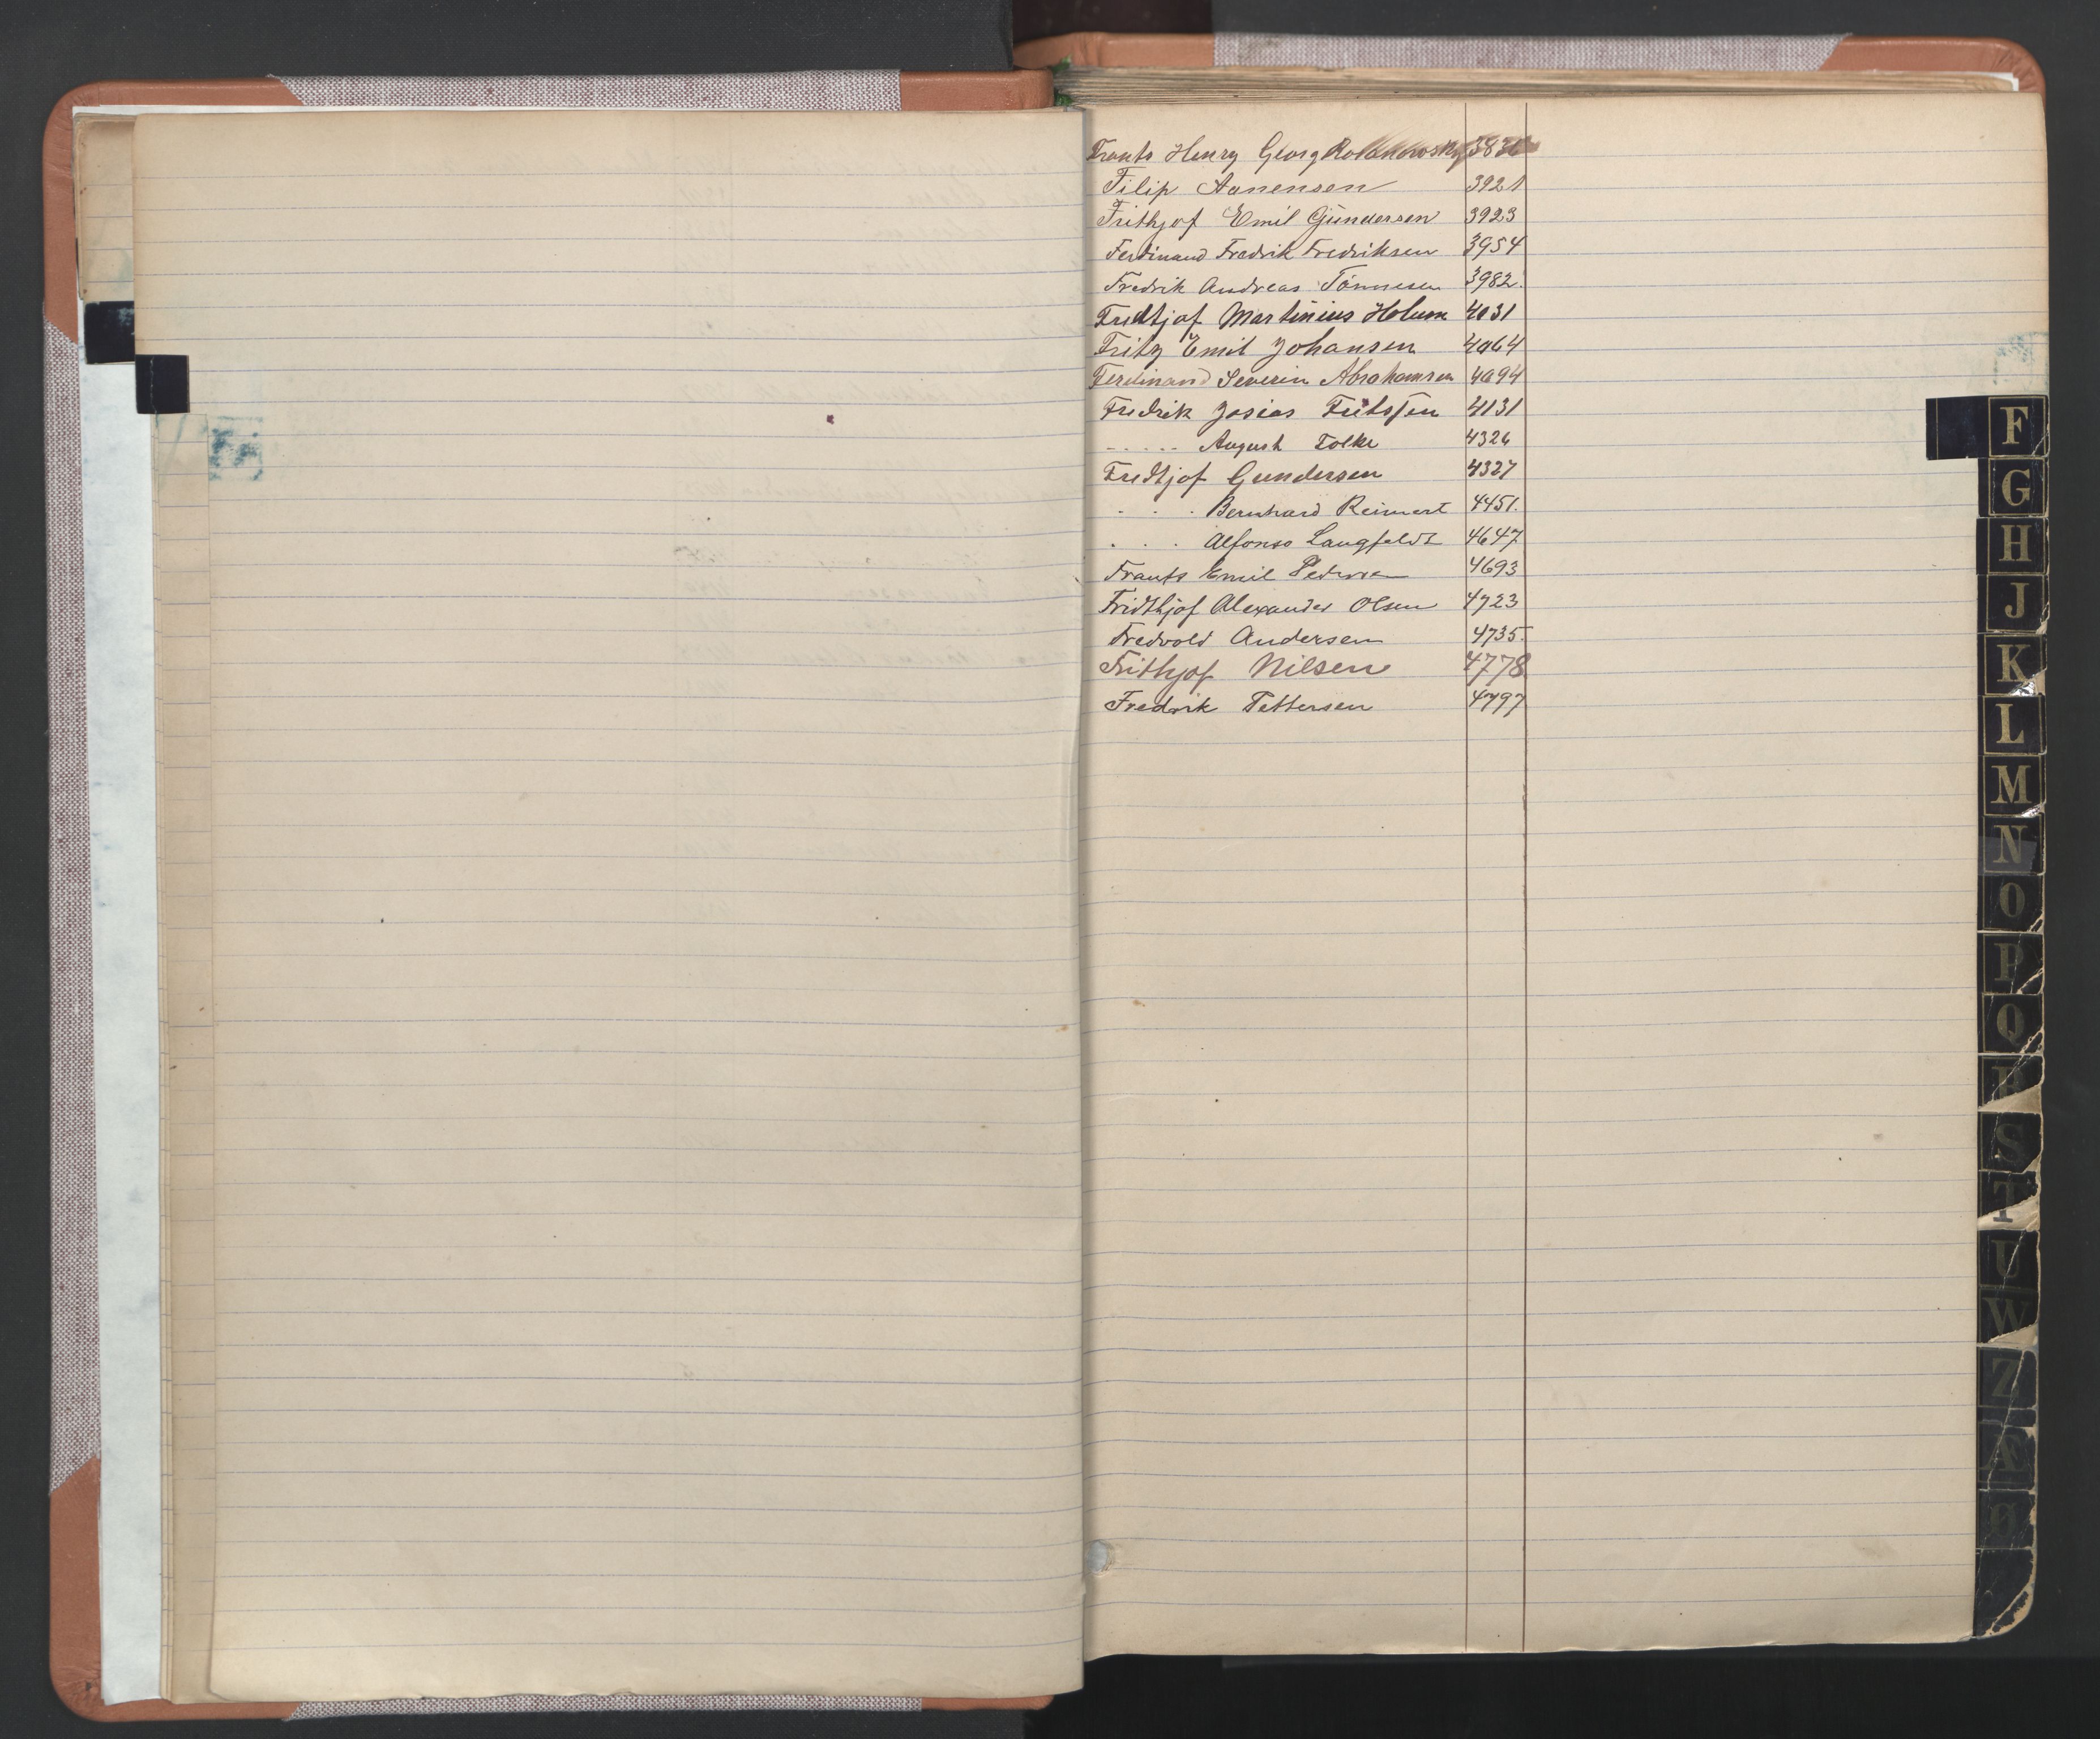 Frants Henry Georg
Filip Aanensen 3921
Frithjof Emil Gundersen 3923
Ferdinand Fredrik Fredriksen 3954
Fredrik Andreas Tönnesen 3982.
Fredtjof Martinius Holum 4031
Fritz Emil Johansen 4064
Ferdinand Severin Abrahamsen 4094
Fredrik Josias 4131
..... August Folke 4326
Fredtjof Gundersen 4327
. . . Bernhard Reimert 4451.
. . . Alfonso Langfeldt 4647
Frants Emil Pedersen 4693
Fridthjof Alexander Olsen 4723
Fredvold Andersen 4735.
Frithjof Nilsen 4778
Fredrik Pettersen 4797
F
G
H
J
K
L
M
N
O
P
Q
R
S
T
U
W
Z
Æ
Ø